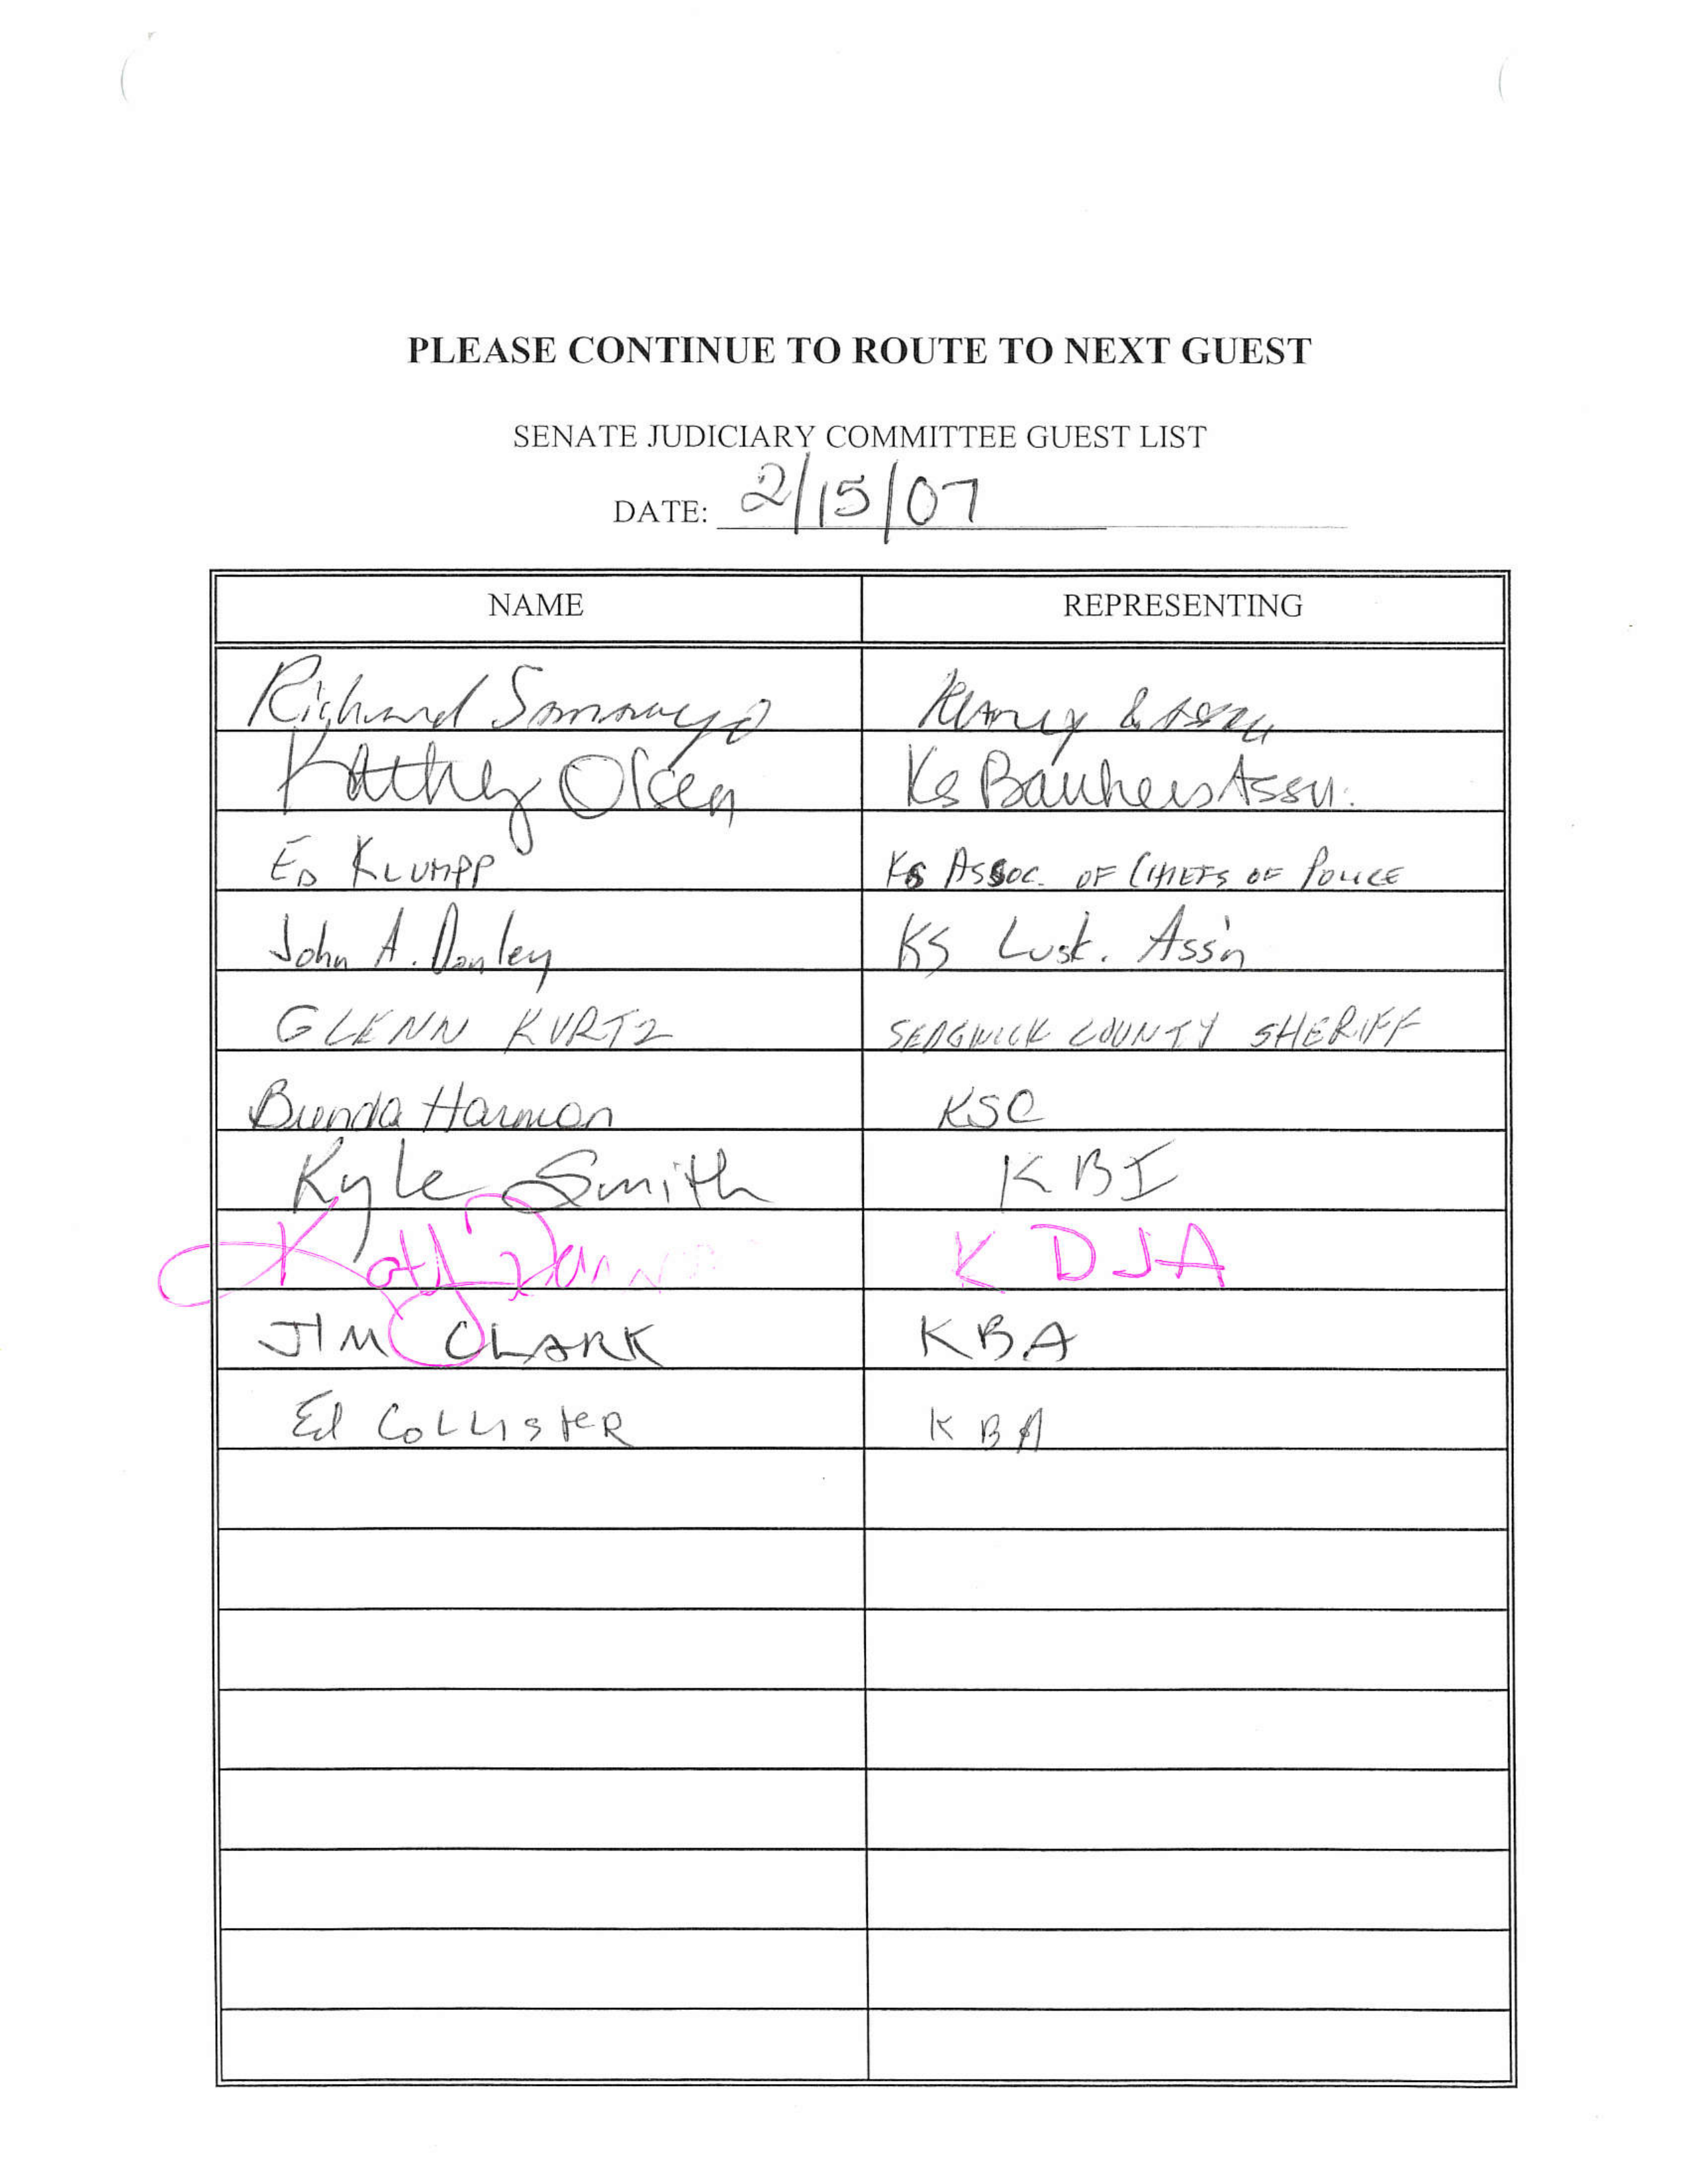 PLEASE CONTINUE TO ROUTE TO NEXT GUEST
SENATE JUDICIARY COMMITTEE GUEST LIST
DATE: 2/15/07
NAME REPRESENTING
Richard Samaniego
Kathy Olsen Ks Bankers Assn.
ED KLUMPP KS ASSOC. OF CHIEFS OF POLICE
John A. Donley KS Lvsk. Ass'n
GLENN KURTZ SEDGWICK COUNTY SHERIFF
Brenda Harmon KSC
Kyle Smith KBI
KDJA
JIM CLARK KBA
Ed COLLISTER KBA